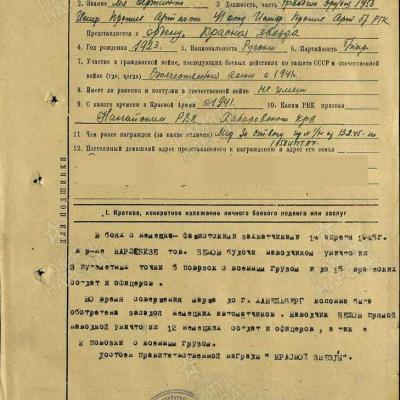 2. Звание Мл сержант 3. Должность, часть Наводчик орудия 1950
Истр Против Арт полк
Представляется к Ордену „Красная звезда"
4. Год рождения 1923. 5. Национальность Русский 6. Партийность
7. Участие в гражданской войне, последующих боевых действиях по защите СССР и отечественной
войне (где, когда) Отечественная война с 1941г.
8. Имеет ли ранения и контузии в отечественной войне не имеет
9. С какого времени в Красной Армии с 1941. 10. Каким РВК призван
Нанайским РВК Хабаровского края
11. Чем ранее награжден (за какие отличия) Мед За отвагу
12. Постоянный домашний адрес представляемого к награждению и адрес его семьи
ДЛЯ ПОДШИВКИ
I. Краткое, конкретное изложение личного боевого подвига или заслуг
В боях с немецко-фашистскими захватчиками 14 апреля 1945г.
в р-не НАРЛЕВИЗЕ тов. БЕЛОВ будучи наводчиком уничтожил
3 пулеметных точки 5 повозок с военным грузом и до 15 вражеских
солдат и офицеров.
Во время совершения марша до г. ХАВЕЛЬБЕРГ колонна была
обстреляна засадой немецких автоматчиков. Наводчик БЕЛОВ прямой
наводкой уничтожил 12 немецких солдат и офицеров, а так е
2 повозки с военным грузом.
достоен правительственной награды " КРАСНОЙ ЗВЕЗДЫ".